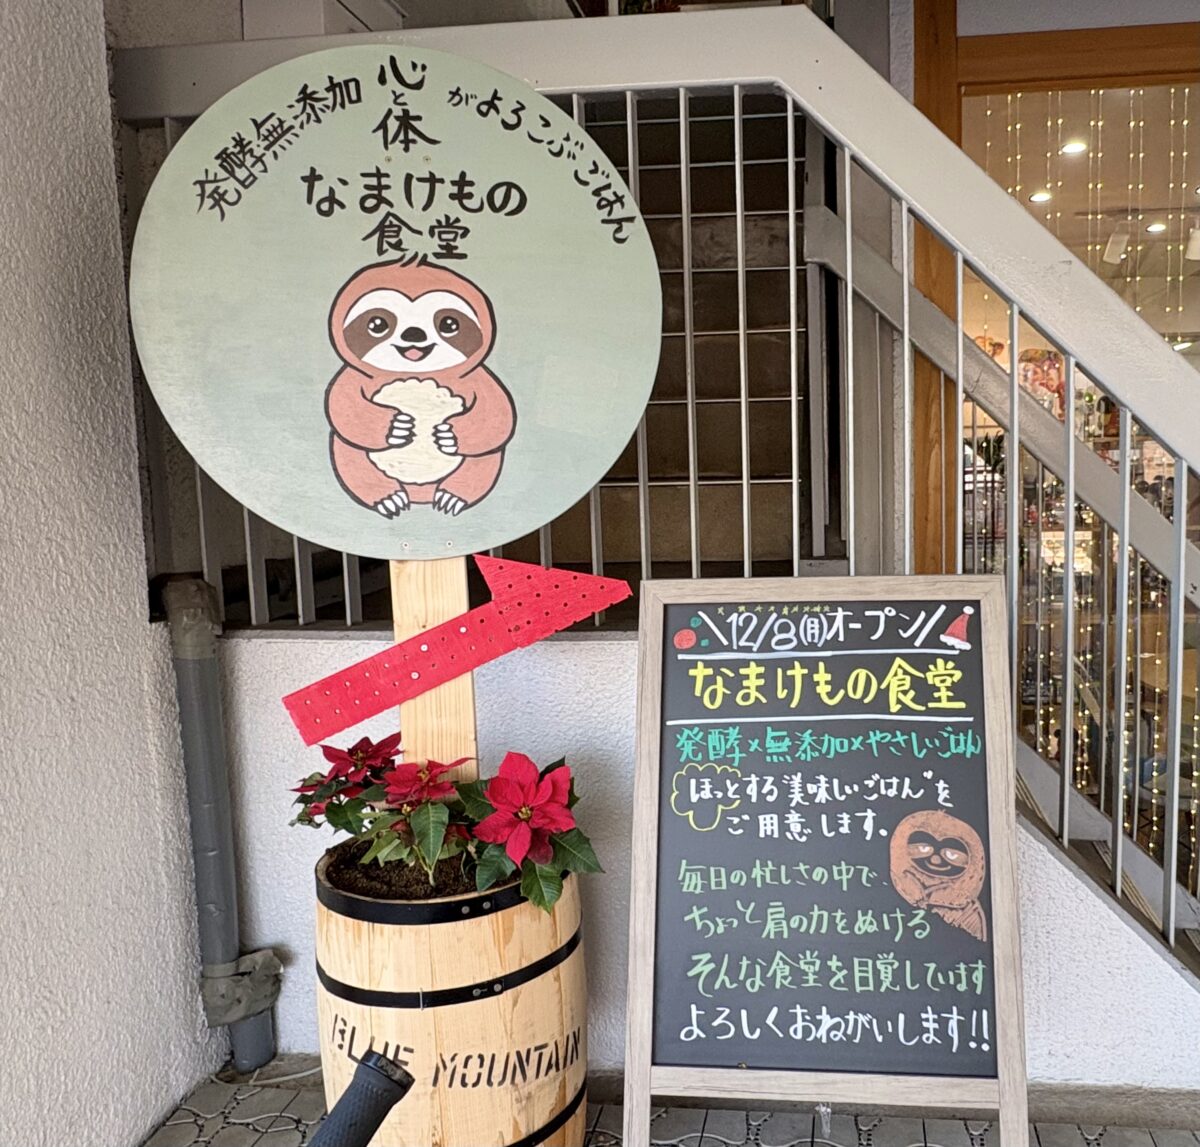 発酵無添加
心と体
がよろこぶごはん
なまけもの
食堂
\12/8(月)オープン/
なまけもの食堂
発酵×無添加×やさしいごはん
ほっとする"美味しいごはん"を
ご用意します。
毎日の忙しさの中で、
ちょっと肩の力をぬける
そんな食堂を目覚しています
よろしくおねがいします!!
BLUE MOUNTAIN